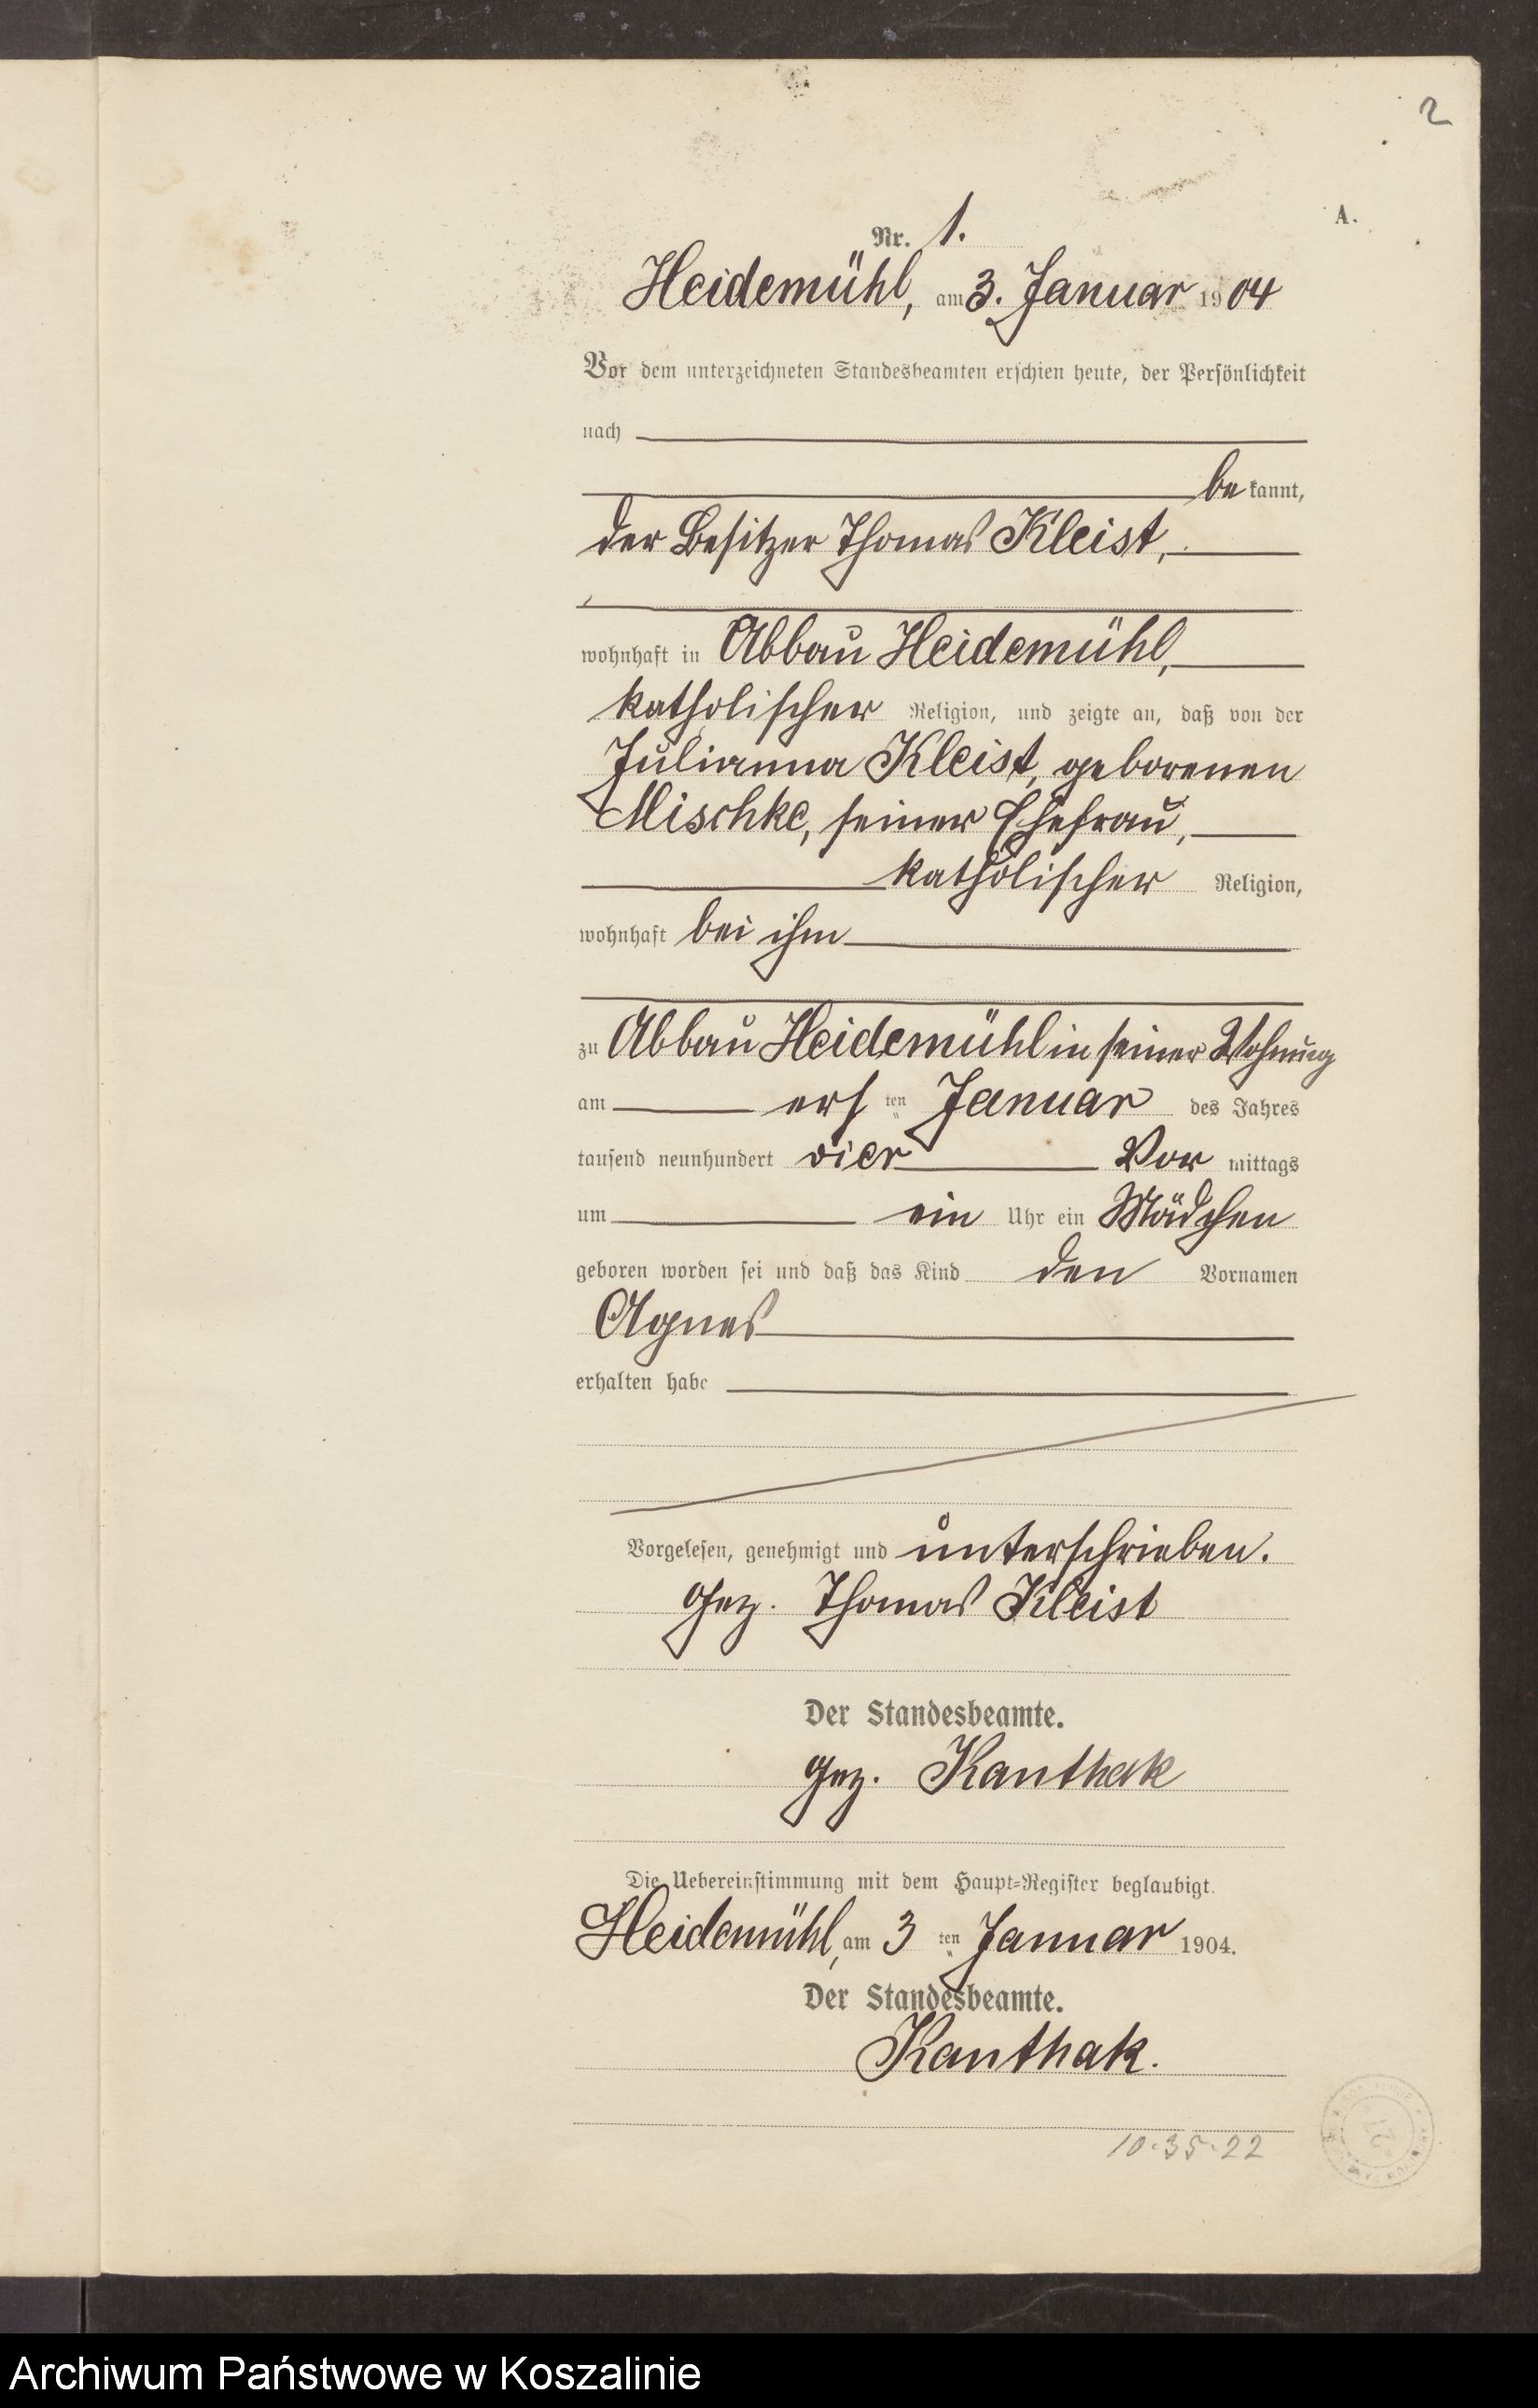 2
A.
Nr. 1.
Heidemühl, am 3. Januar 1904
Vor dem unterzeichneten Standesbeamten erschien heute, der Persönlichkeit
nach
be kannt,
der Besitzer Thomas Kleist,
wohnhaft in Abbau Heidemühl,
katholischer Religion, und zeigte an, daß von der
Julianna Kleist, geborenen
Mischke, seiner Ehefrau,
katholischer Religion,
wohnhaft bei ihm
zu Abbau Heidemühl in seiner Wohnung
am ersten Januar des Jahres
tausend neunhundert vier Vor mittags
um ein Uhr ein Mädchen
geboren worden sei und daß das Kind den Vornamen
Agnes
erhalten habe
Vorgelesen, genehmigt und unterschrieben.
gez. Thomas Kleist
Der Standesbeamte.
gez. Kanthak
Die Uebereinstimmung mit dem Haupt-Register beglaubigt.
Heidemühl, am 3 ten Januar 1904.
Der Standesbeamte.
Kanthak.
10.35.22
Archiwum Państwowe w Koszalinie